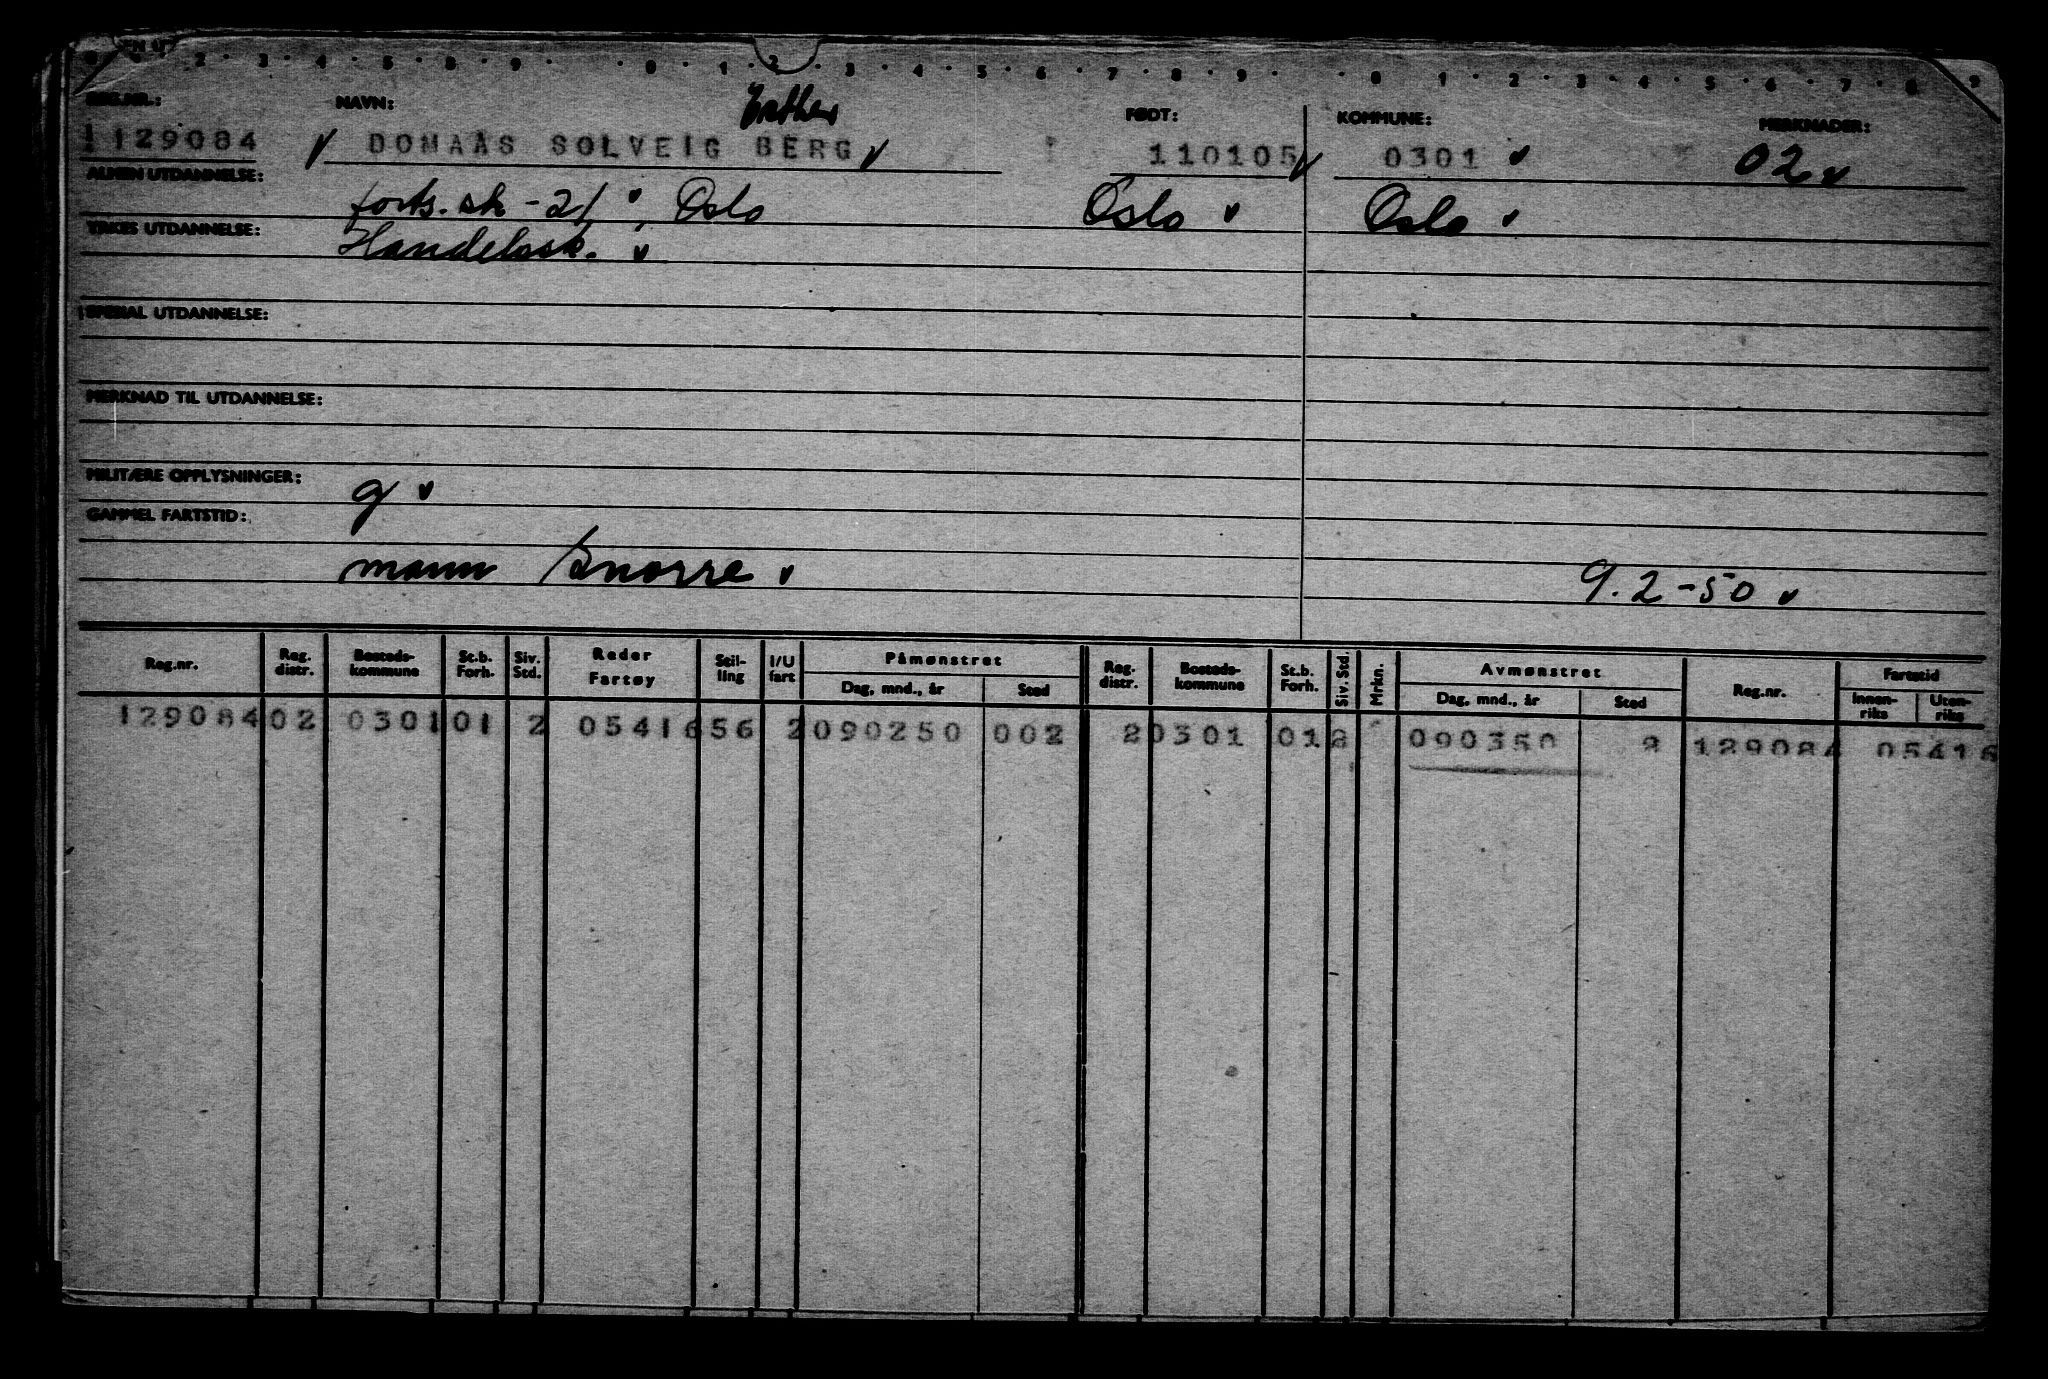 0 · 2 · 3 · 4 · 5 · 8 · 9 · · 0 · 1 · 2 · 3 · 4 · 5 · 6 · 7 · 8 · 9 · · 0 · 1 · 2 · 3 · 4 · 5 · 6 · 7 · 8 · 9
REG.NR.: NAVN: Esther FØDT: KOMMUNE: MERKNADER:
1129084 DOMAAS SOLVEIG BERG 110105 0301 02
ALMEN UTDANNELSE: forts.sk - 21, Oslo Oslo Oslo
YRKES UTDANNELSE: Handelssk.
SPESIAL UTDANNELSE:
MERKNAD TIL UTDANNELSE:
MILITÆRE OPPLYSNINGER: g
GAMMEL FARTSTID:
mønn Snorre 9.2-50
Reg.nr. Reg. distr. Bosteds-kommune St.b. Forh. Siv. Std. Reder Fartøy Stil-ling I/U fart Påmønstret Dag, mnd., år Sted Reg. distr. Bosteds-kommune St.b. Forh. Siv. Std. Mrkn. Avmønstret Dag, mnd., år Sted Reg.nr. Fartstid Innen-riks Uten-riks
129084 02 0301 01 2 05416 56 2 090250 002 2 0301 01 2 090350 2 129084 05416